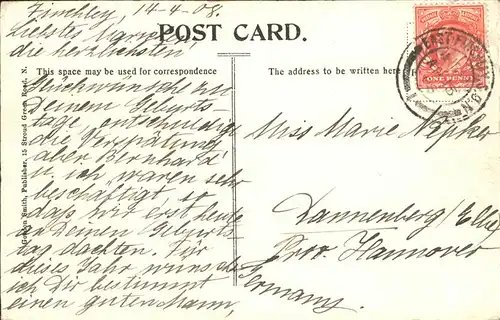 Finchley, 14-4-08.
Liebstes
die herzlichsten
POST CARD.
This space may be used for correspondence
The address to be written here
Glückwünsche zu
Deinem Geburts-
tage, entschuldige
die Verspätung
aber Bernhard
u. ich waren sehr
beschäftigt so
daß wir erst heute
an Deinen Geburts
tag dachten. Für
dieses Jahr wünsche
ich Dir bestimmt
einen guten Mann,
Gordon Smith, Publisher, 15 Stroud Green Road, N.
ONE PENNY
EAST FINCHLEY
Miss Marie
Dannenberg / Elbe
Prov. Hannover
Germany.